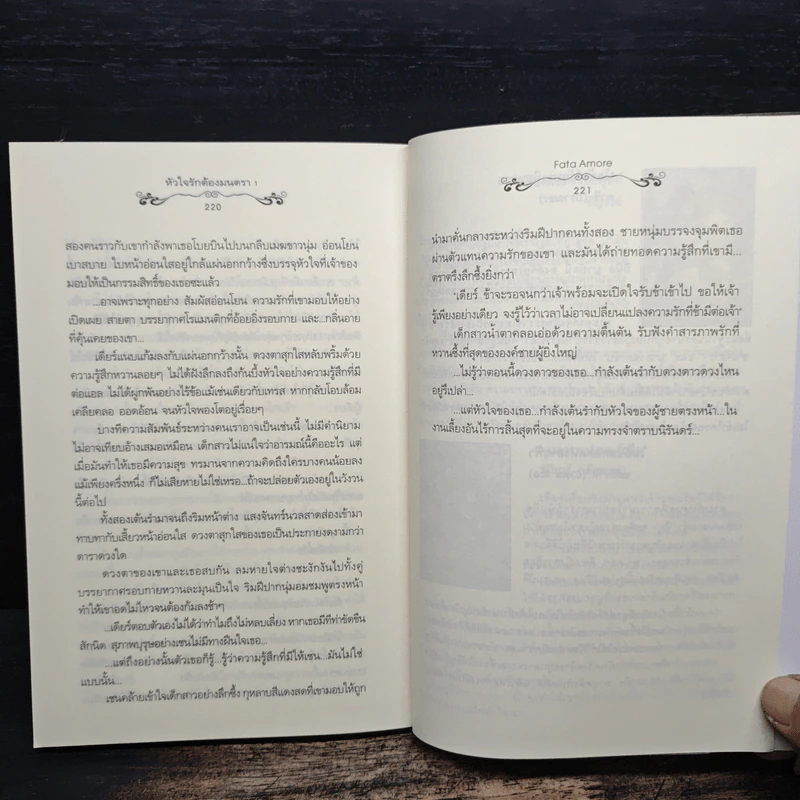 หัวใจรักต้องมนตรา 1
220
สองคนราวกับเขากำลังพาเธอโบยบินไปบนกลีบเมฆขาวนุ่ม อ่อนโยน
เบาสบาย ใบหน้าอ่อนใสอยู่ใกล้แผ่นอกกว้างซึ่งบรรจุหัวใจที่เจ้าของ
มอบให้เป็นกรรมสิทธิ์ของเธอซะแล้ว
...อาจเพราะทุกอย่าง สัมผัสอ่อนโยน ความรักที่เขามอบให้อย่าง
เปิดเผย สายตา บรรยากาศโรแมนติกที่อ้อยอิ่งรอบกาย และ...กลิ่นอาย
ที่คุ้นเคยของเขา...
เดียร์แนบแก้มลงกับแผ่นอกกว้างนั้น ดวงตาสุกใสหลับพริ้มด้วย
ความรู้สึกหวานลอยๆ ไม่ได้ฝังลึกลงถึงก้นบึ้งหัวใจอย่างความรู้สึกที่มี
ต่อแอล ไม่ได้ผูกพันอย่างไร้ข้อแม้เช่นเดียวกับเทรส หากกลับโอบล้อม
เคลียคลอ ออดอ้อน จนหัวใจพองโตอยู่เรื่อยๆ
บางทีความสัมพันธ์ระหว่างคนเราอาจเป็นเช่นนี้ ไม่มีคำนิยาม
ไม่อาจเทียบอ้างเสมอเหมือน เด็กสาวไม่แน่ใจว่าอารมณ์นี้คืออะไร แต่
เมื่อมันทำให้เธอมีความสุข ทรมานจากความคิดถึงใครบางคนน้อยลง
แม้เพียงครึ่งหนึ่ง ก็ไม่เสียหายไม่ใช่เหรอ...ถ้าจะปล่อยตัวเองอยู่ในวังวน
นี้ต่อไป
ทั้งสองเต้นรำมาจนถึงริมหน้าต่าง แสงจันทร์นวลสาดส่องเข้ามา
ทาบทากับเสี้ยวหน้าอ่อนใส ดวงตาสุกใสของเธอเป็นประกายงดงามกว่า
ดาราดวงใด
ดวงตาของเขาและเธอสบกัน ลมหายใจต่างชะงักงันไปทั้งคู่
บรรยากาศรอบกายหวานละมุนเป็นใจ ริมฝีปากนุ่มอมชมพูตรงหน้า
ทำให้เขาอดไม่ไหวจนต้องก้มลงช้าๆ
...เดียร์ตอบตัวเองไม่ได้ว่าทำไมถึงไม่หลบเลี่ยง หากเธอมีทีท่าขัดขืน
สักนิด สุภาพบุรุษอย่างเซนไม่มีทางฝืนใจเธอ...
...แต่ถึงอย่างนั้นตัวเธอก็รู้...รู้ว่าความรู้สึกที่มีให้เซน...มันไม่ใช่
แบบนั้น...
เซนคล้ายเข้าใจเด็กสาวอย่างลึกซึ้ง กุหลาบสีแดงสดที่เขามอบให้ถูก
Fata Amore
221
นำมาคั่นกลางระหว่างริมฝีปากคนทั้งสอง ชายหนุ่มบรรจงจุมพิตเธอ
ผ่านตัวแทนความรักของเขา และมันได้ถ่ายทอดความรู้สึกที่เขามี...
ตราตรึงลึกซึ้งยิ่งกว่า
"เดียร์ ข้าจะรอจนกว่าเจ้าพร้อมจะเปิดใจรับข้าเข้าไป ขอให้เจ้า
รู้เพียงอย่างเดียว จงรู้ไว้ว่าเวลาไม่อาจเปลี่ยนแปลงความรักที่ข้ามีต่อเจ้า"
เด็กสาวน้ำตาคลอเอ่อด้วยความตื้นตัน รับฟังคำสารภาพรักที่
หวานซึ้งที่สุดขององค์ชายผู้ยิ่งใหญ่
...ไม่รู้ว่าตอนนี้ดวงดาวของเธอ...กำลังเต้นรำกับดวงดาวดวงไหน
อยู่รึเปล่า...
...แต่หัวใจของเธอ...กำลังเต้นรำกับหัวใจของผู้ชายตรงหน้า...ใน
งานเลี้ยงอันไร้การสิ้นสุดที่จะอยู่ในความทรงจำตราบนิรันดร์...